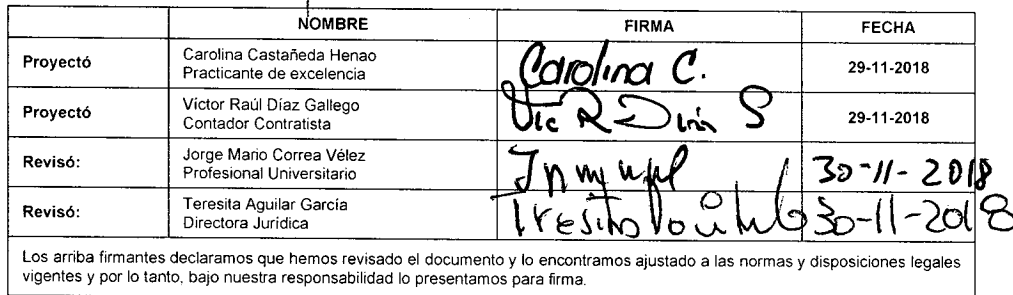 NOMBRE FIRMA FECHA
Proyectó Carolina Castañeda Henao
Practicante de excelencia Carolina C. 29-11-2018
Proyectó Víctor Raúl Díaz Gallego
Contador Contratista 29-11-2018
Revisó: Jorge Mario Correa Vélez
Profesional Universitario 30-11-2018
Revisó: Teresita Aguilar García
Directora Jurídica 30-11-2018
Los arriba firmantes declaramos que hemos revisado el documento y lo encontramos ajustado a las normas y disposiciones legales
vigentes y por lo tanto, bajo nuestra responsabilidad lo presentamos para firma.